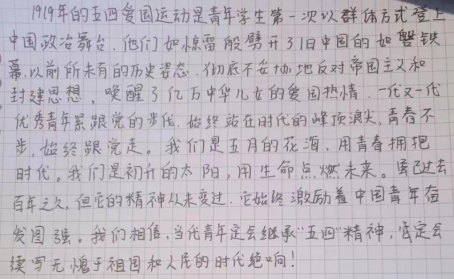 1919年的五四爱国运动是青年学生第一次以群体方式登上
中国政治舞台,他们如惊雷般劈开了旧中国的如磐铁
幕,以前所未有的历史姿态,彻底不妥协地反对帝国主义和
封建思想,唤醒了亿万中华儿女的爱国热情,一代又一代
优秀青年紧跟党的步伐,始终站在时代的峰顶浪尖,青春不
步,始终跟党走。我们是五月的花海,用青春拥抱
时代。我们是初升的太阳,用生命点燃未来。虽已过去
百年之久,但它的精神从未变过,它始终激励着中国青年奋
发图强。我们相信,当代青年定会继承"五四"精神,定会
续写无愧于祖国和人民的时代绝响!